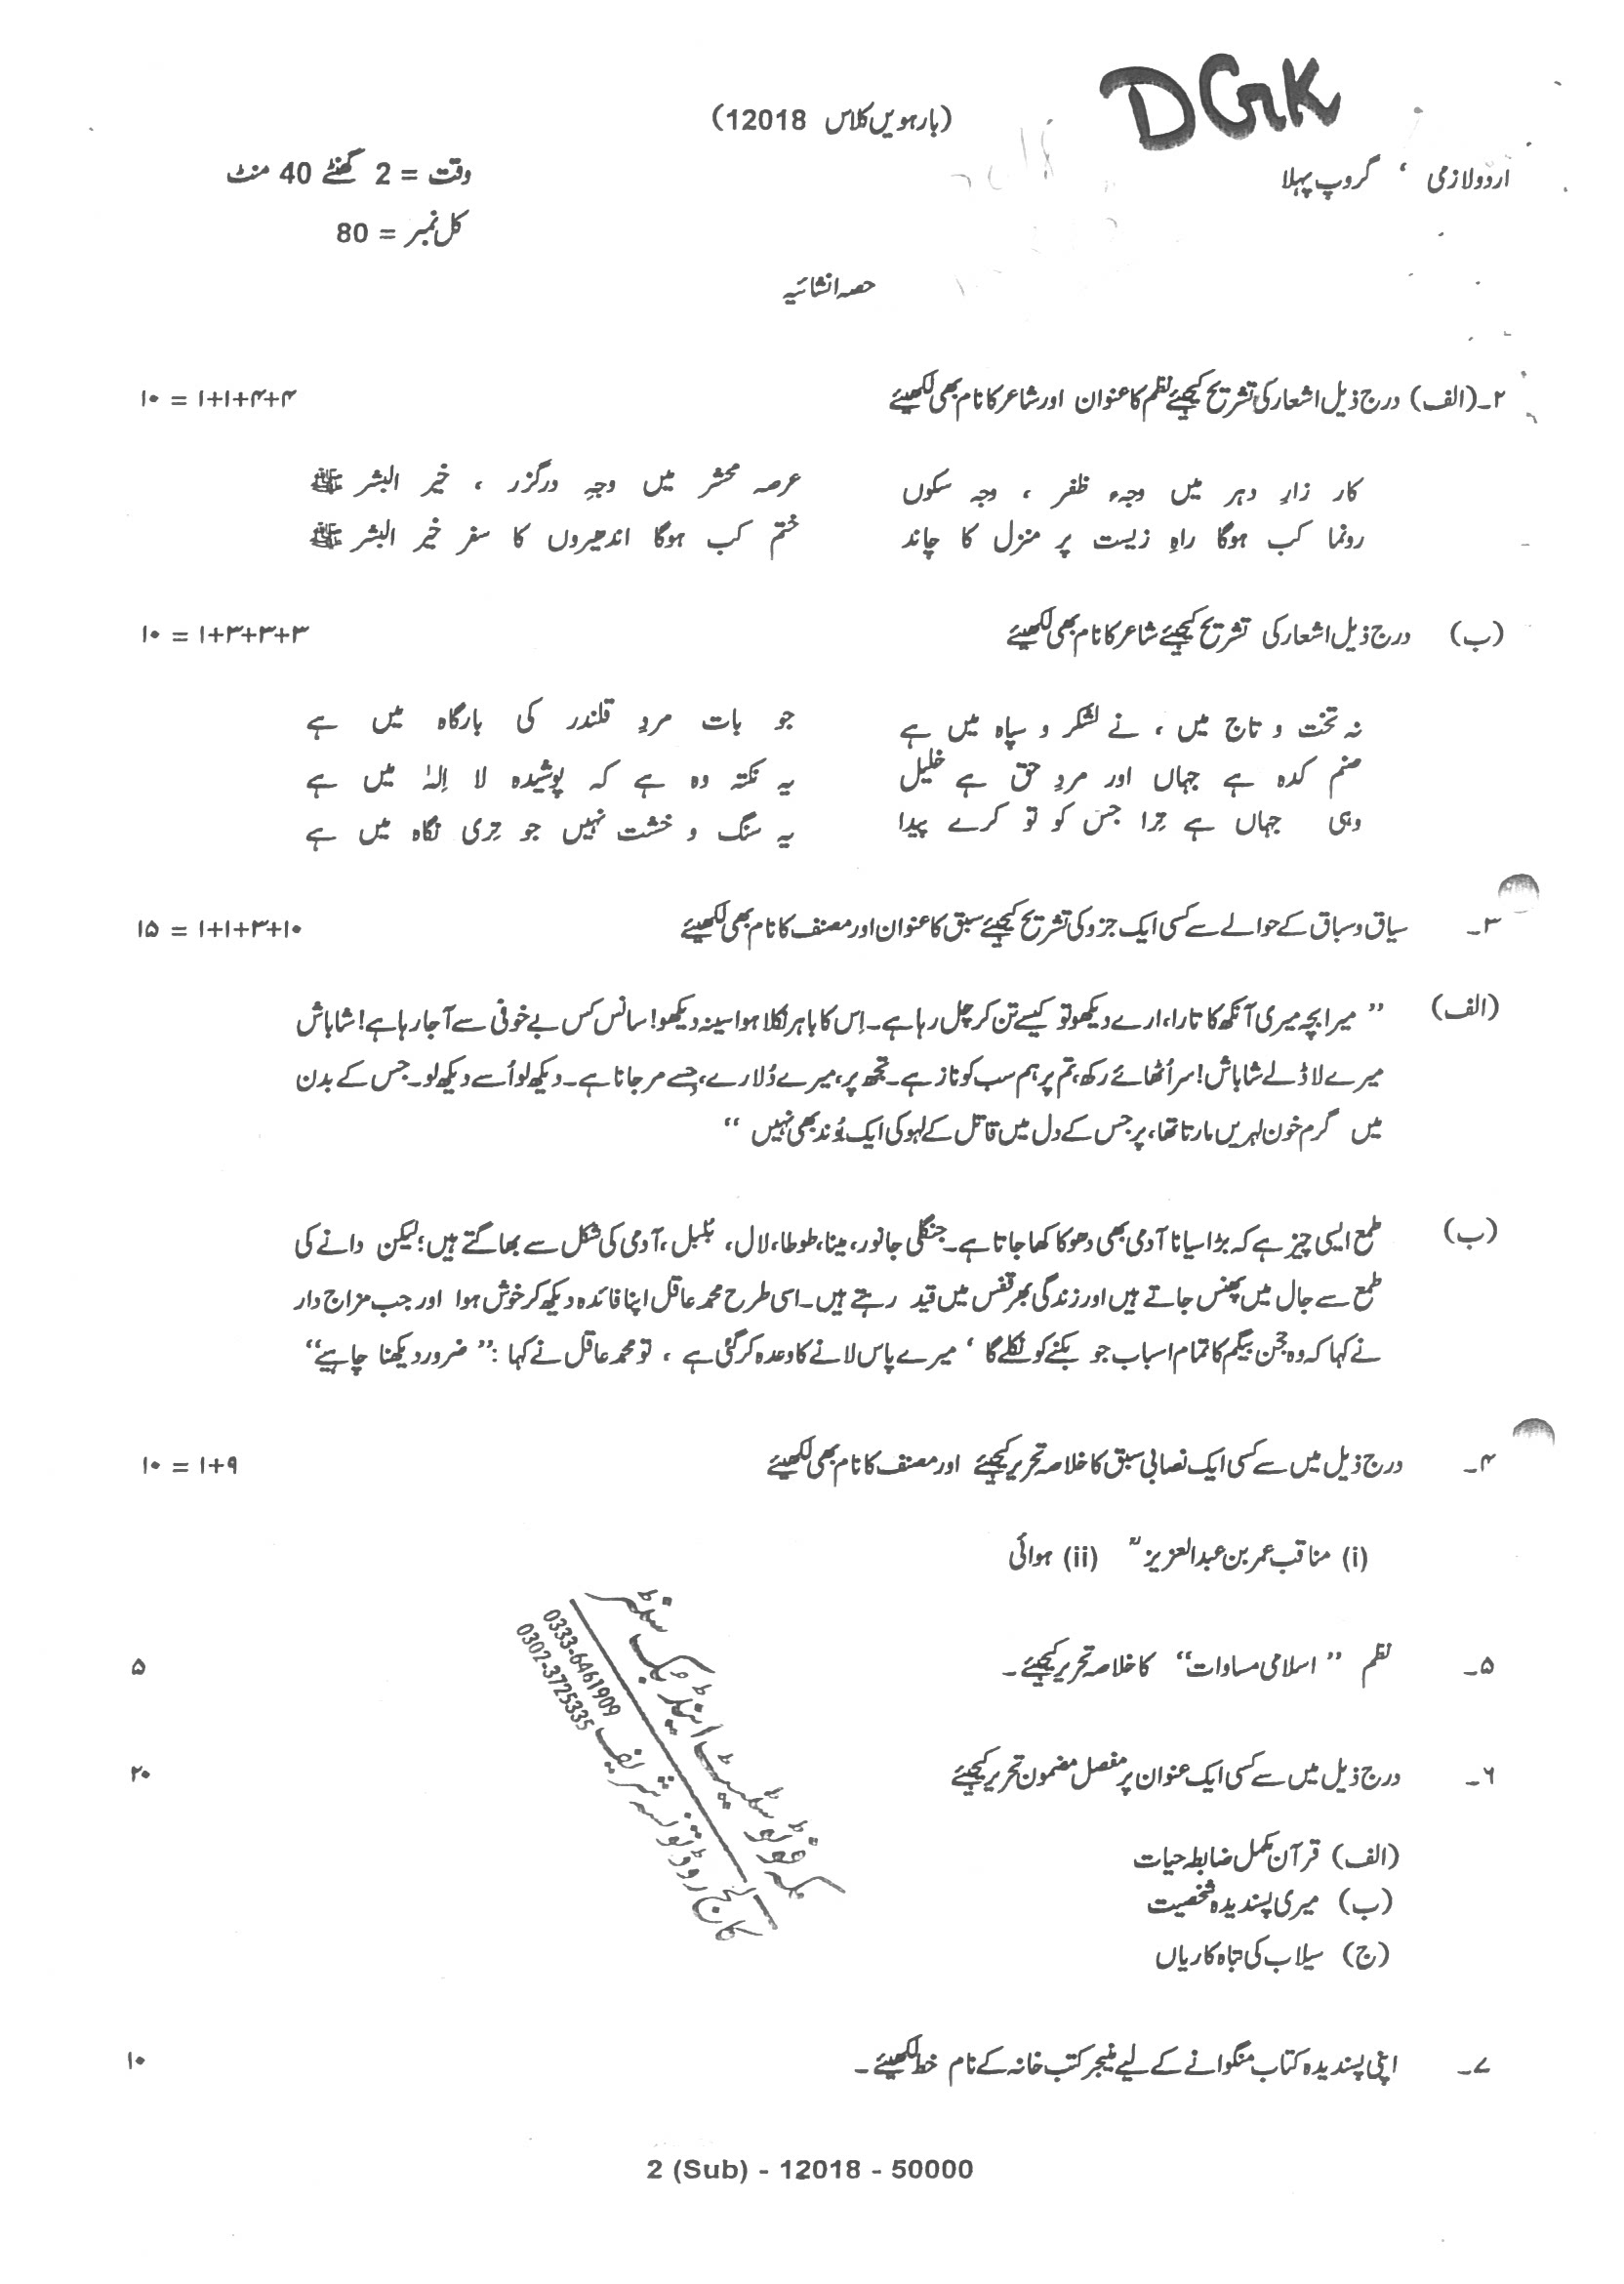 DGK
(بارہویں کلاس 12018)
اردو لازمی ، گروپ پہلا
وقت = 2 گھنٹے 40 منٹ
کل نمبر = 80
حصہ انشائیہ
۲۔(الف) درج ذیل اشعار کی تشریح کیجیئے نظم کا عنوان اور شاعر کا نام بھی لکھیئے ۱+۱+۴+۴ = ۱۰
کار زارِ دہر میں وجہء ظفر ، وجہ سکوں عرصہ محشر میں وجہِ درگزر ، خیر البشر ﷺ
رونما کب ہوگا راہِ زیست پر منزل کا چاند ختم کب ہوگا اندھیروں کا سفر خیر البشر ﷺ
(ب) درج ذیل اشعار کی تشریح کیجیئے شاعر کا نام بھی لکھیئے ۱+۳+۳+۳ = ۱۰
نہ تخت و تاج میں ، نے لشکر و سپاہ میں ہے جو بات مردِ قلندر کی بارگاہ میں ہے
صنم کدہ ہے جہاں اور مردِ حق ہے خلیل یہ نکتہ وہ ہے کہ پوشیدہ لا اِلہٰ میں ہے
وہی جہاں ہے تِرا جس کو تو کرے پیدا یہ سنگ و خشت نہیں جو تِری نگاہ میں ہے
۳۔ سیاق و سباق کے حوالے سے کسی ایک جزو کی تشریح کیجیئے سبق کا عنوان اور مصنف کا نام بھی لکھیئے ۱+۱+۳+۱۰ = ۱۵
(الف) ’’ میرا بچہ میری آنکھ کا تارا، ارے دیکھو تو کیسے تن کر چل رہا ہے۔ اِس کا باہر نکلا ہوا سینہ دیکھو! سانس کس بے خوفی سے آ جا رہا ہے! شاباش
میرے لاڈلے شاباش! سر اُٹھائے رکھ، تم پر ہم سب کو ناز ہے۔ تجھ پر، میرے دُلارے، جسے مر جانا ہے۔ دیکھ لو اُسے دیکھ لو۔ جس کے بدن
میں گرم خون لہریں مارتا تھا، پر جس کے دل میں قاتل کے لہو کی ایک بُوند بھی نہیں ‘‘
(ب) طمع ایسی چیز ہے کہ بڑا سیانا آدمی بھی دھوکا کھا جاتا ہے۔ جنگلی جانور، مینا، طوطا، لال، بُلبل، آدمی کی شکل سے بھاگتے ہیں؛ لیکن دانے کی
طمع سے جال میں پھنس جاتے ہیں اور زندگی بھر قفس میں قید رہتے ہیں۔ اسی طرح محمد عاقل اپنا فائدہ دیکھ کر خوش ہوا اور جب مزاج دار
نے کہا کہ وہ حجن بیگم کا تمام اسباب جو بکنے کو نکلے گا ‘ میرے پاس لانے کا وعدہ کر گئی ہے ، تو محمد عاقل نے کہا :’’ ضرور دیکھنا چاہیے‘‘
۴۔ درج ذیل میں سے کسی ایک نصابی سبق کا خلاصہ تحریر کیجیئے اور مصنف کا نام بھی لکھیئے ۱+۹ = ۱۰
(i) مناقب عمر بن عبدالعزیزؒ (ii) ہوائی
۵۔ نظم ’’ اسلامی مساوات‘‘ کا خلاصہ تحریر کیجیئے۔ ۵
۶۔ درج ذیل میں سے کسی ایک عنوان پر مفصل مضمون تحریر کیجیئے ۲۰
(الف) قرآن مکمل ضابطہ حیات
(ب) میری پسندیدہ شخصیت
(ج) سیلاب کی تباہ کاریاں
مکہ فوٹوسٹیٹ اینڈ بک سنٹر
0333-6461909
کالج روڈ تونسہ شریف 0302-3725335
۷۔ اپنی پسندیدہ کتاب منگوانے کے لیے مینیجر کتب خانہ کے نام خط لکھیئے۔ ۱۰
2 (Sub) - 12018 - 50000